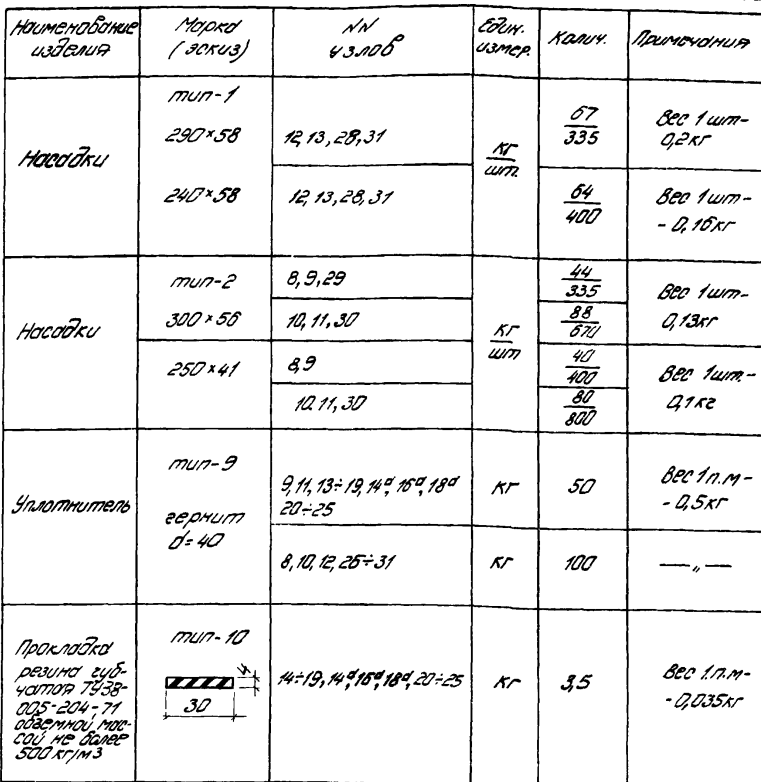 Наименование изделия
Марка (эскиз)
NN узлов
Един. измер.
Колич.
Примечания
Насадки
тип-1
290×58
12, 13, 28, 31
кг
шт.
67
335
Вес 1 шт-
0,2кг
240×58
12, 13, 28, 31
64
400
Вес 1 шт-
- 0,16кг
Насадки
тип-2
300×56
8, 9, 29
кг
шт
44
335
Вес 1шт-
0,13кг
10, 11, 30
88
670
250×41
8,9
40
400
Вес 1шт.-
0,1кг
10.11, 30
80
800
Уплотнитель
тип-9
гернит
d=40
9, 11, 13÷19, 14ᵃ, 16ᵃ, 18ᵃ
20÷25
кг
50
Вес 1п.м-
- 0,5кг
8, 10, 12, 26÷31
кг
100
—„—
Прокладка
резина губ-
чатая ТУ38-
005-204-71
объемной мас-
сой не более
500 кг/м3
тип-10
4
30
14÷19, 14ᵃ, 16ᵃ, 18ᵃ, 20÷25
кг
3,5
Вес 1.п.м-
- 0,035кг